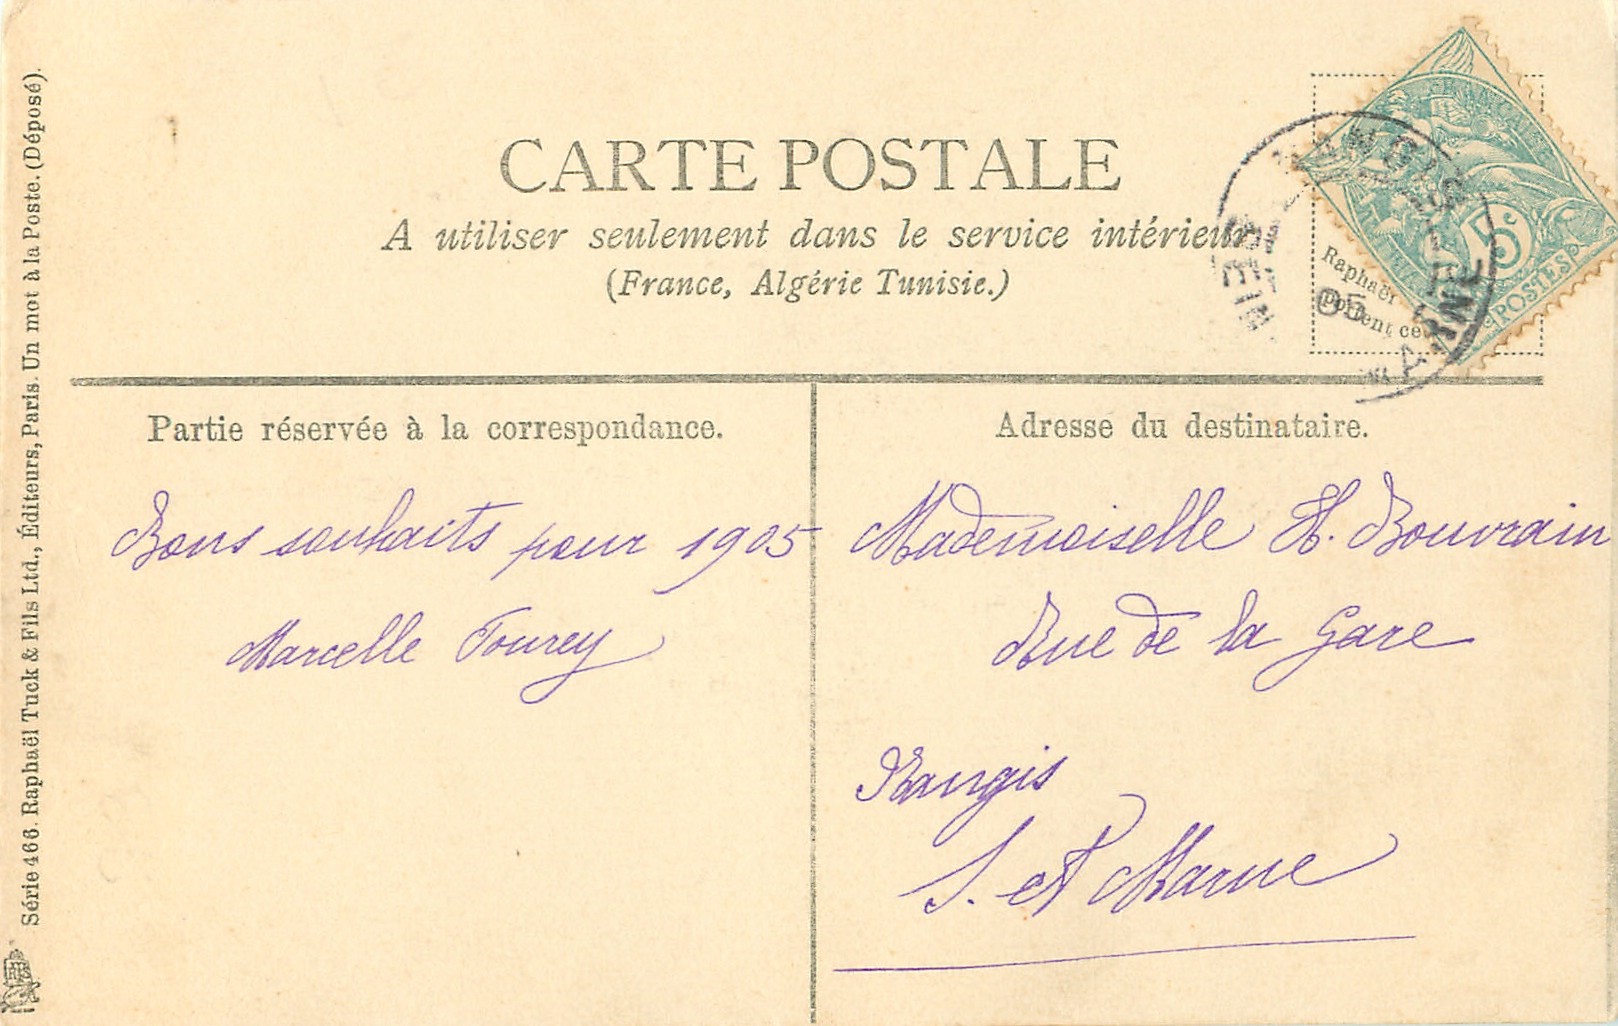 CARTE POSTALE
A utiliser seulement dans le service intérieur
(France, Algérie Tunisie.)
Raphaël
portent ce
5c
POSTES
NANGIS
SEINE
MARNE
05
Partie réservée à la correspondance.
Bons souhaits pour 1905
Marcelle Tourey
Adresse du destinataire.
Mademoiselle H. Bouvrain
Rue de la Gare
Nangis
S. et Marne
Série 466. Raphaël Tuck & Fils Ltd., Éditeurs, Paris. Un mot à la Poste. (Déposé).